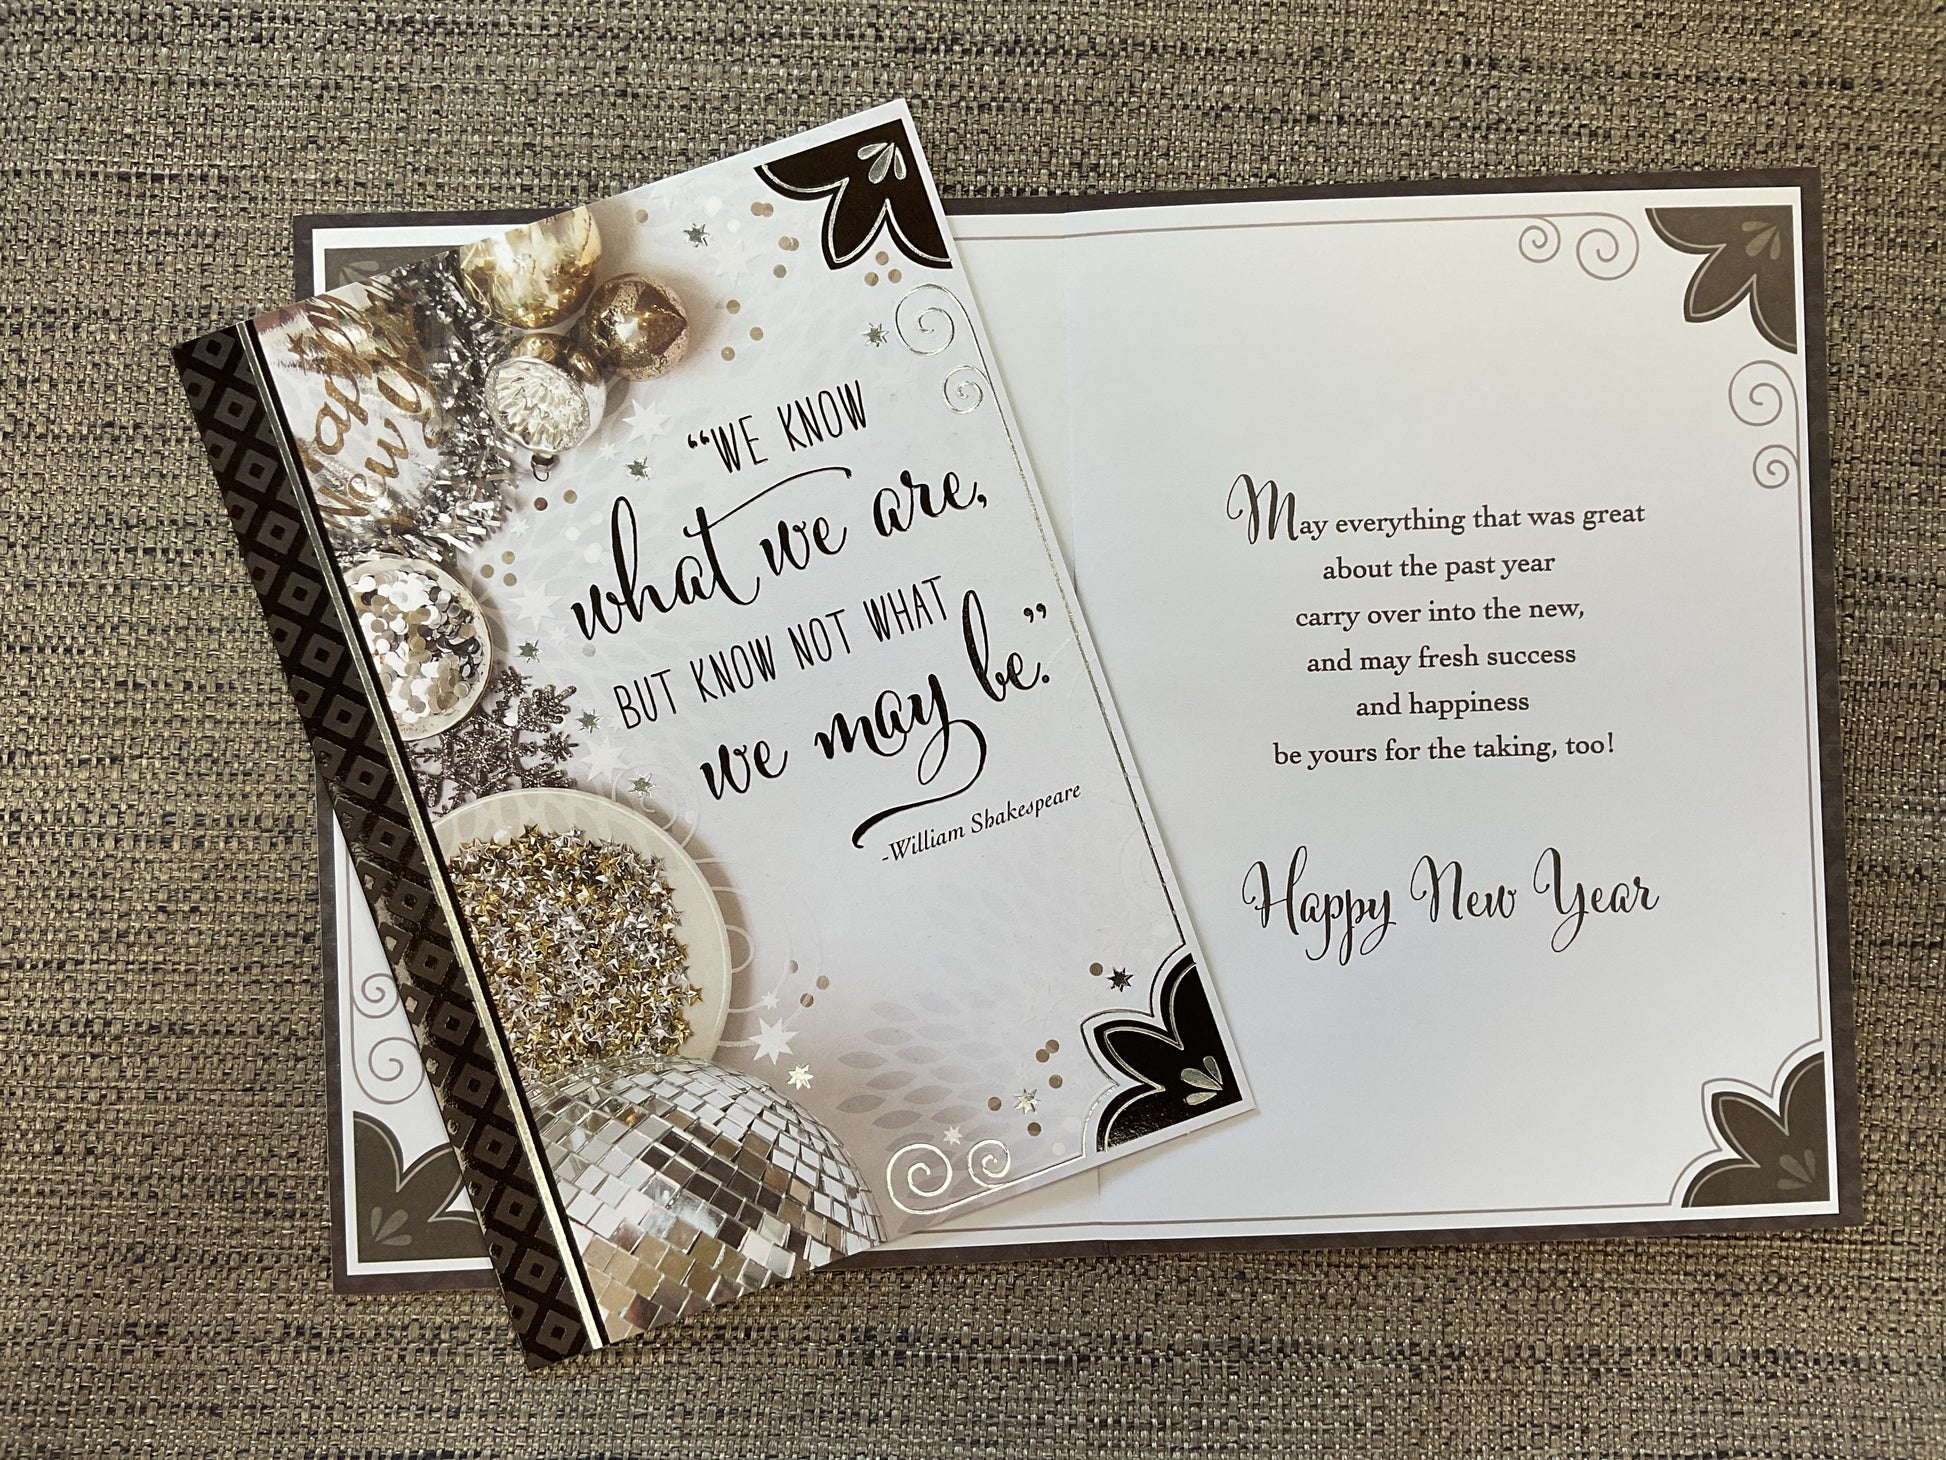 Happy
New Year
“WE KNOW
what we are,
BUT KNOW NOT WHAT
we may be.”
-William Shakespeare
May everything that was great
about the past year
carry over into the new,
and may fresh success
and happiness
be yours for the taking, too!
Happy New Year